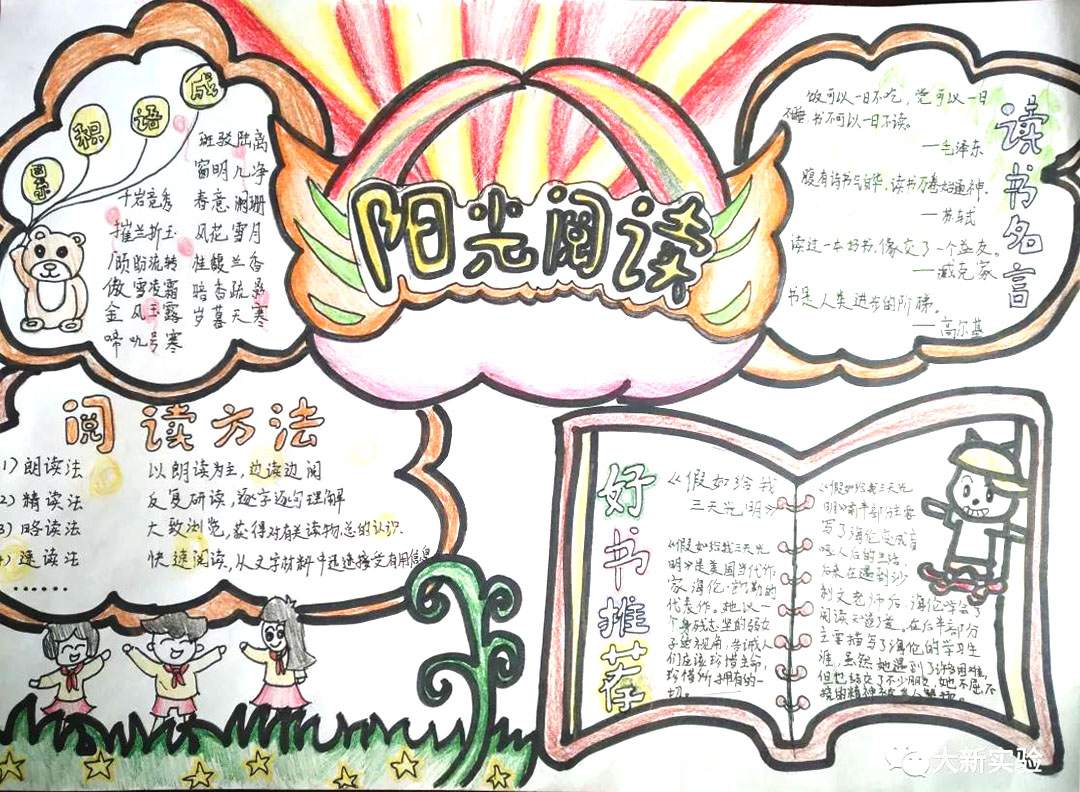 阳光阅读
成
语
积
累
斑驳陆离
窗明几净
千岩竞秀 春意阑珊
摧兰折玉 风花雪月
顾盼流转 佳馥兰香
傲雪凌霜 暗香疏桑
金风玉露 岁暮天寒
啼饥号寒
读书名言
饭可以一日不吃，觉可以一日
不睡，书不可以一日不读。
—毛泽东
腹有诗书气自华，读书万卷始通神。
—苏轼
读过一本好书，像交了一个益友。
—臧克家
书是人类进步的阶梯。
—高尔基
阅读方法
1）朗读法 以朗读为主，边读边闻
2）精读法 反复研读，逐字逐句理解
3）略读法 大致浏览，获得对有关读物总的认识.
4）速读法 快速阅读，从文字材料中迅速接受有用信息
……
好书推荐
《假如给我
三天光明》
《假如给我三天光
明》是美国当代作
家海伦·凯勒的
代表作。她以一
个身残志坚的弱女
子的视角，告诫人
们应该珍惜生命，
珍惜所拥有的一
切。
《假如给我三天光
明》前半部分主要
写了海伦变成盲
人后的生活，
后来在遇到沙
利文老师后，海伦学会了
阅读，在后半部分
主要描写了海伦的学习生
涯，虽然她遇到了许多困难，
但也结交了不少朋友，她不屈不
挠的精神
大新实验